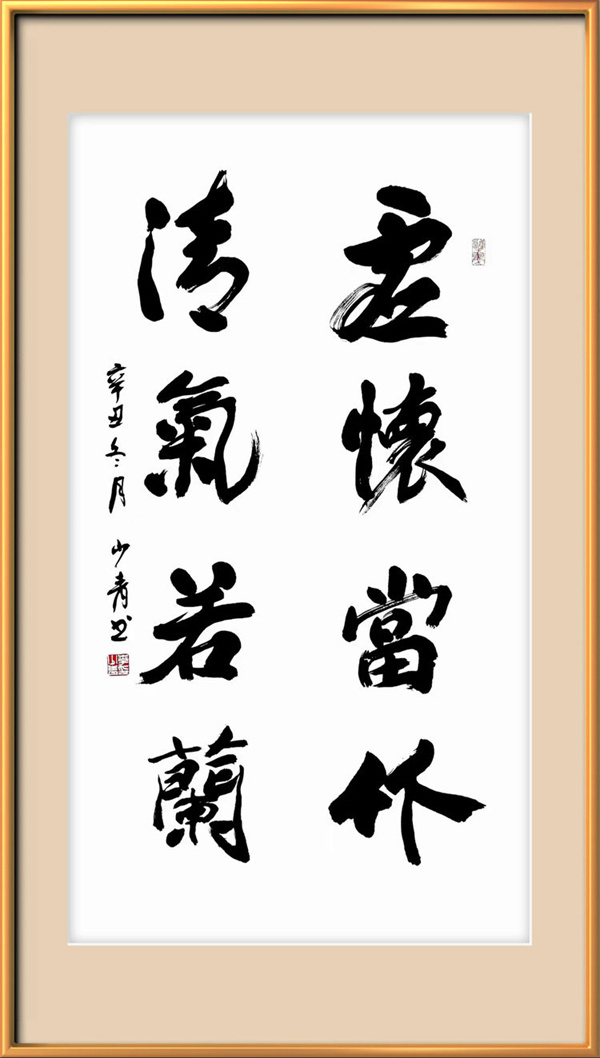 虚懷當竹
清氣若蘭
辛丑冬月 少青书